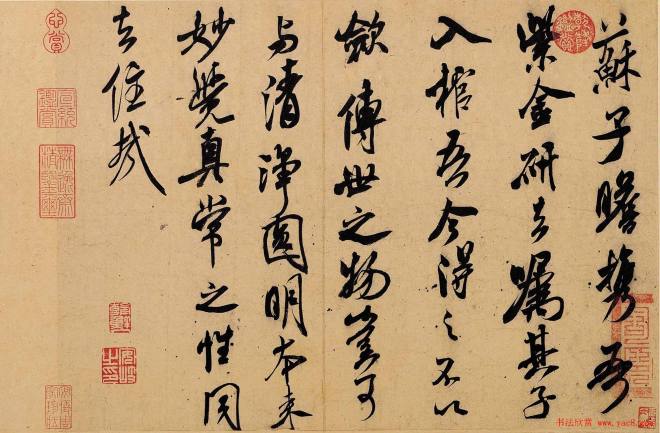 蘇子瞻攜吾
紫金研去嘱其子
入棺吾今得之不以
歛傳世之物豈可
与清淨圓明本来
妙覺真常之性同
去住哉
书法欣赏 www.yac8.com